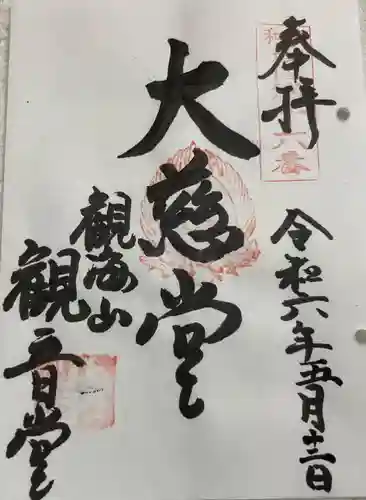 奉拝
令和六年五月十二日
大慈堂
観海山
観音堂